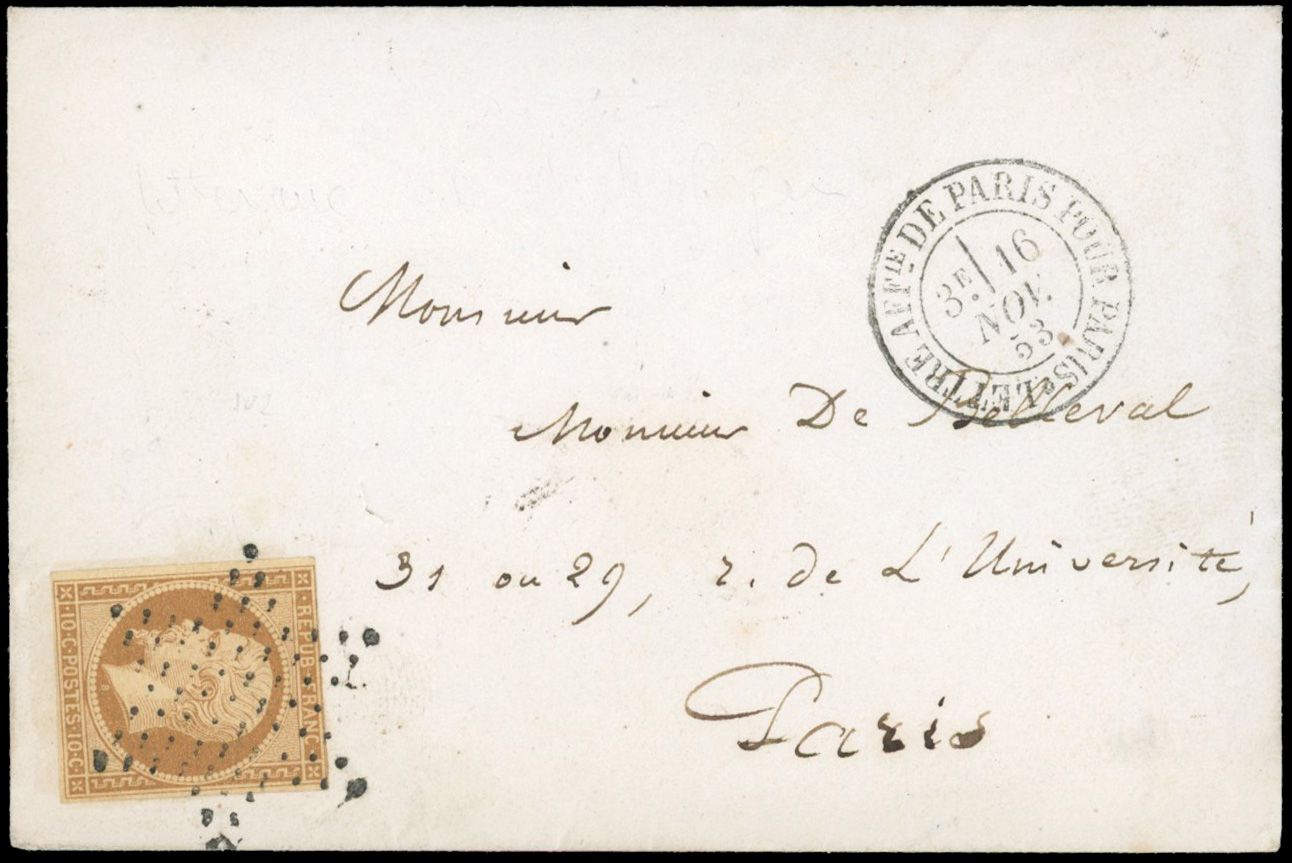 LETTRE AFFIE DE PARIS POUR PARIS
3E 16
NOV.
53
Monsieur
Monsieur De Belleval
31 ou 29, r. de L'Université,
Paris
REPUB·FRANC·
10·C·POSTES·10·C